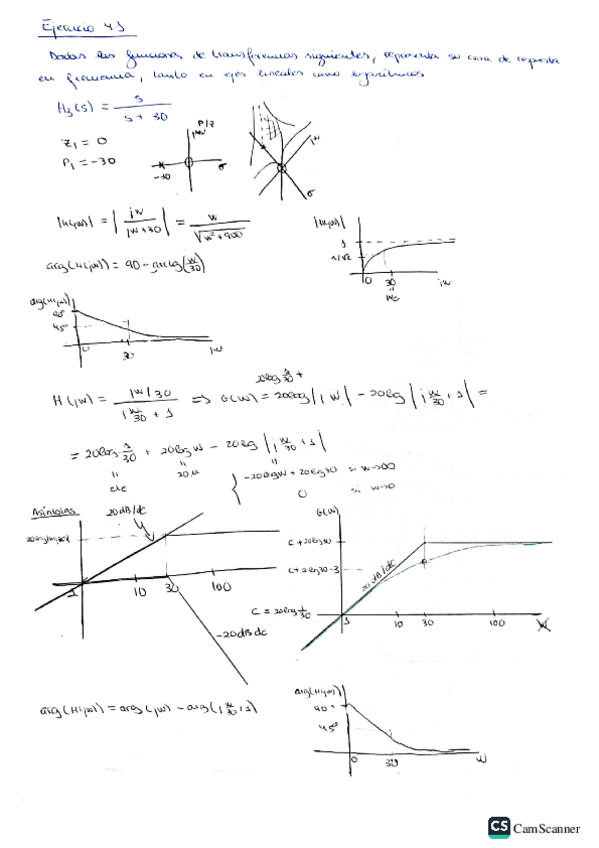 Ejercicio 4.1
Dadas las funciones de transferencias siguientes, representa su curva de respuesta
en frecuencia, tanto en ejes lineales como logarítmicos
H₃(s) = s / (s + 30)
P/Z
jw
Z₁ = 0
P₁ = -30
-30
σ
jw
σ
|H(jw)| = | jw / (jw + 30) | = w / √(w² + 900)
arg(H(jw)) = 90 - arctg(w/30)
|H(jw)|
1
1/√2
0 30 jw
wc
arg(H(jw))
45°
0 30 jw
20log 1/30 +
H(jw) = (jw/30) / (j w/30 + 1) ⇒ G(w) = 20log |jw| - 20log | j w/30 + 1 | =
= 20log 1/30 + 20log w - 20log | j w/30 + 1 |
cte 20 μ
-20log w + 20log 30 si w→∞
0 si w→0
Asíntotas 20 dB/dc
1 10 30 100
-20dB dc
G(w)
C + 20log30
C + 20log30 - 3
20 dB/dc
C = 20log 1/30
1 10 30 100 W
arg(H(jw)) = arg(jw) - arg(j w/30 + 1)
arg(H(jw))
90°
45°
0 30 W
CS CamScanner